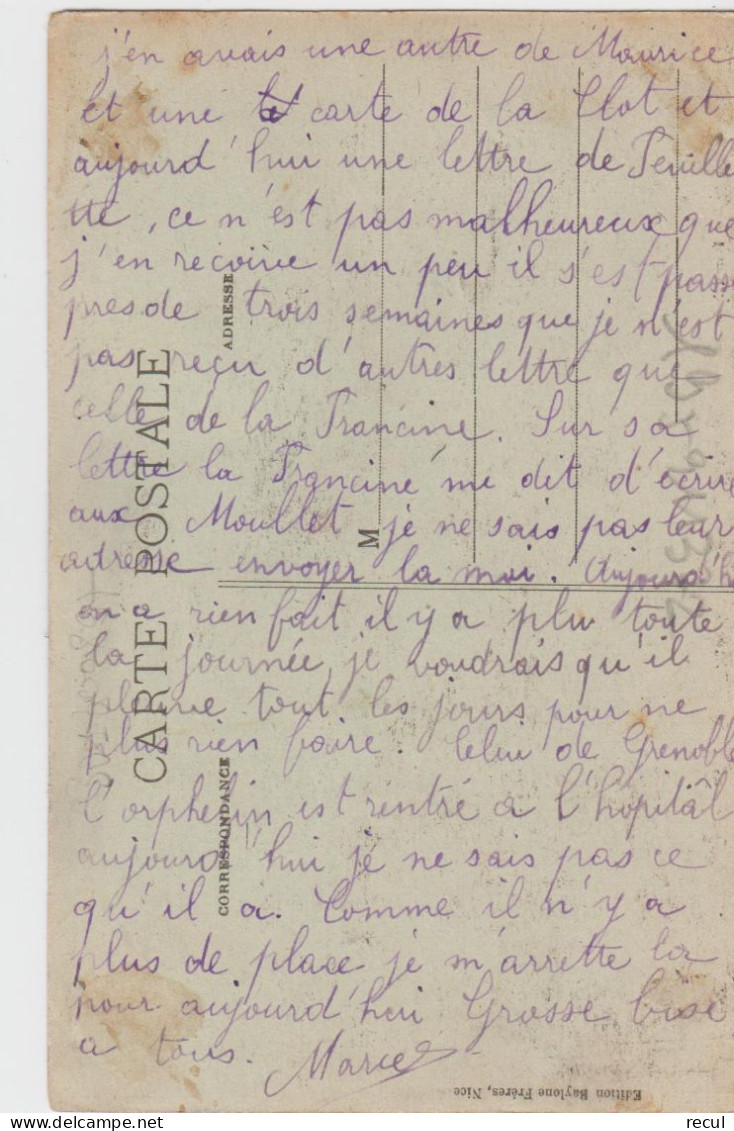 j'en avais une autre de Maurice
et une carte de la Clot et
aujourd'hui une lettre de Peuille
tte, ce n'est pas malheureux que
j'en recoive un peu il s'est passe
pres de trois semaines que je n'est
pas reçu d'autres lettre que
celle de la Francine. Sur sa
lettre la Francine me dit d'écrire
aux Moullet je ne sais pas leur
adresse envoyer la moi. Aujourd'h
on a rien fait il y a plu toute
la journée, je voudrais qu'il
pleuve tout les jours pour ne
plus rien faire. Celui de Grenoble
l'orphelin est rentré a l'hopitâl
aujourd'hui je ne sais pas ce
qu'il a. Comme il n'y a
plus de place je m'arrette la
pour aujourd'hui Grosse bise
a tous. Marcel
CARTE POSTALE
ADRESSE
CORRESPONDANCE
M
Edition Baylone Frères, Nice
recul